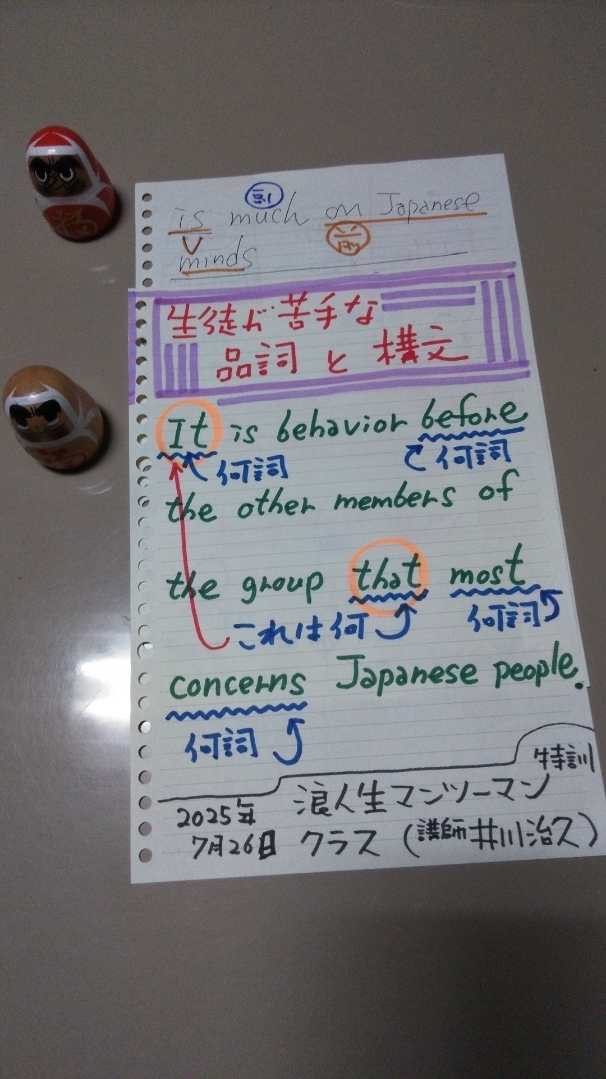 副
is much on Japanese
V
minds
生徒が苦手な
品詞と構文
It is behavior before
何詞 何詞
the other members of
the group that most
これは何 何詞
concerns Japanese people.
何詞
特訓
2025年 浪人生マンツーマン
7月26日 クラス (講師井川治久)